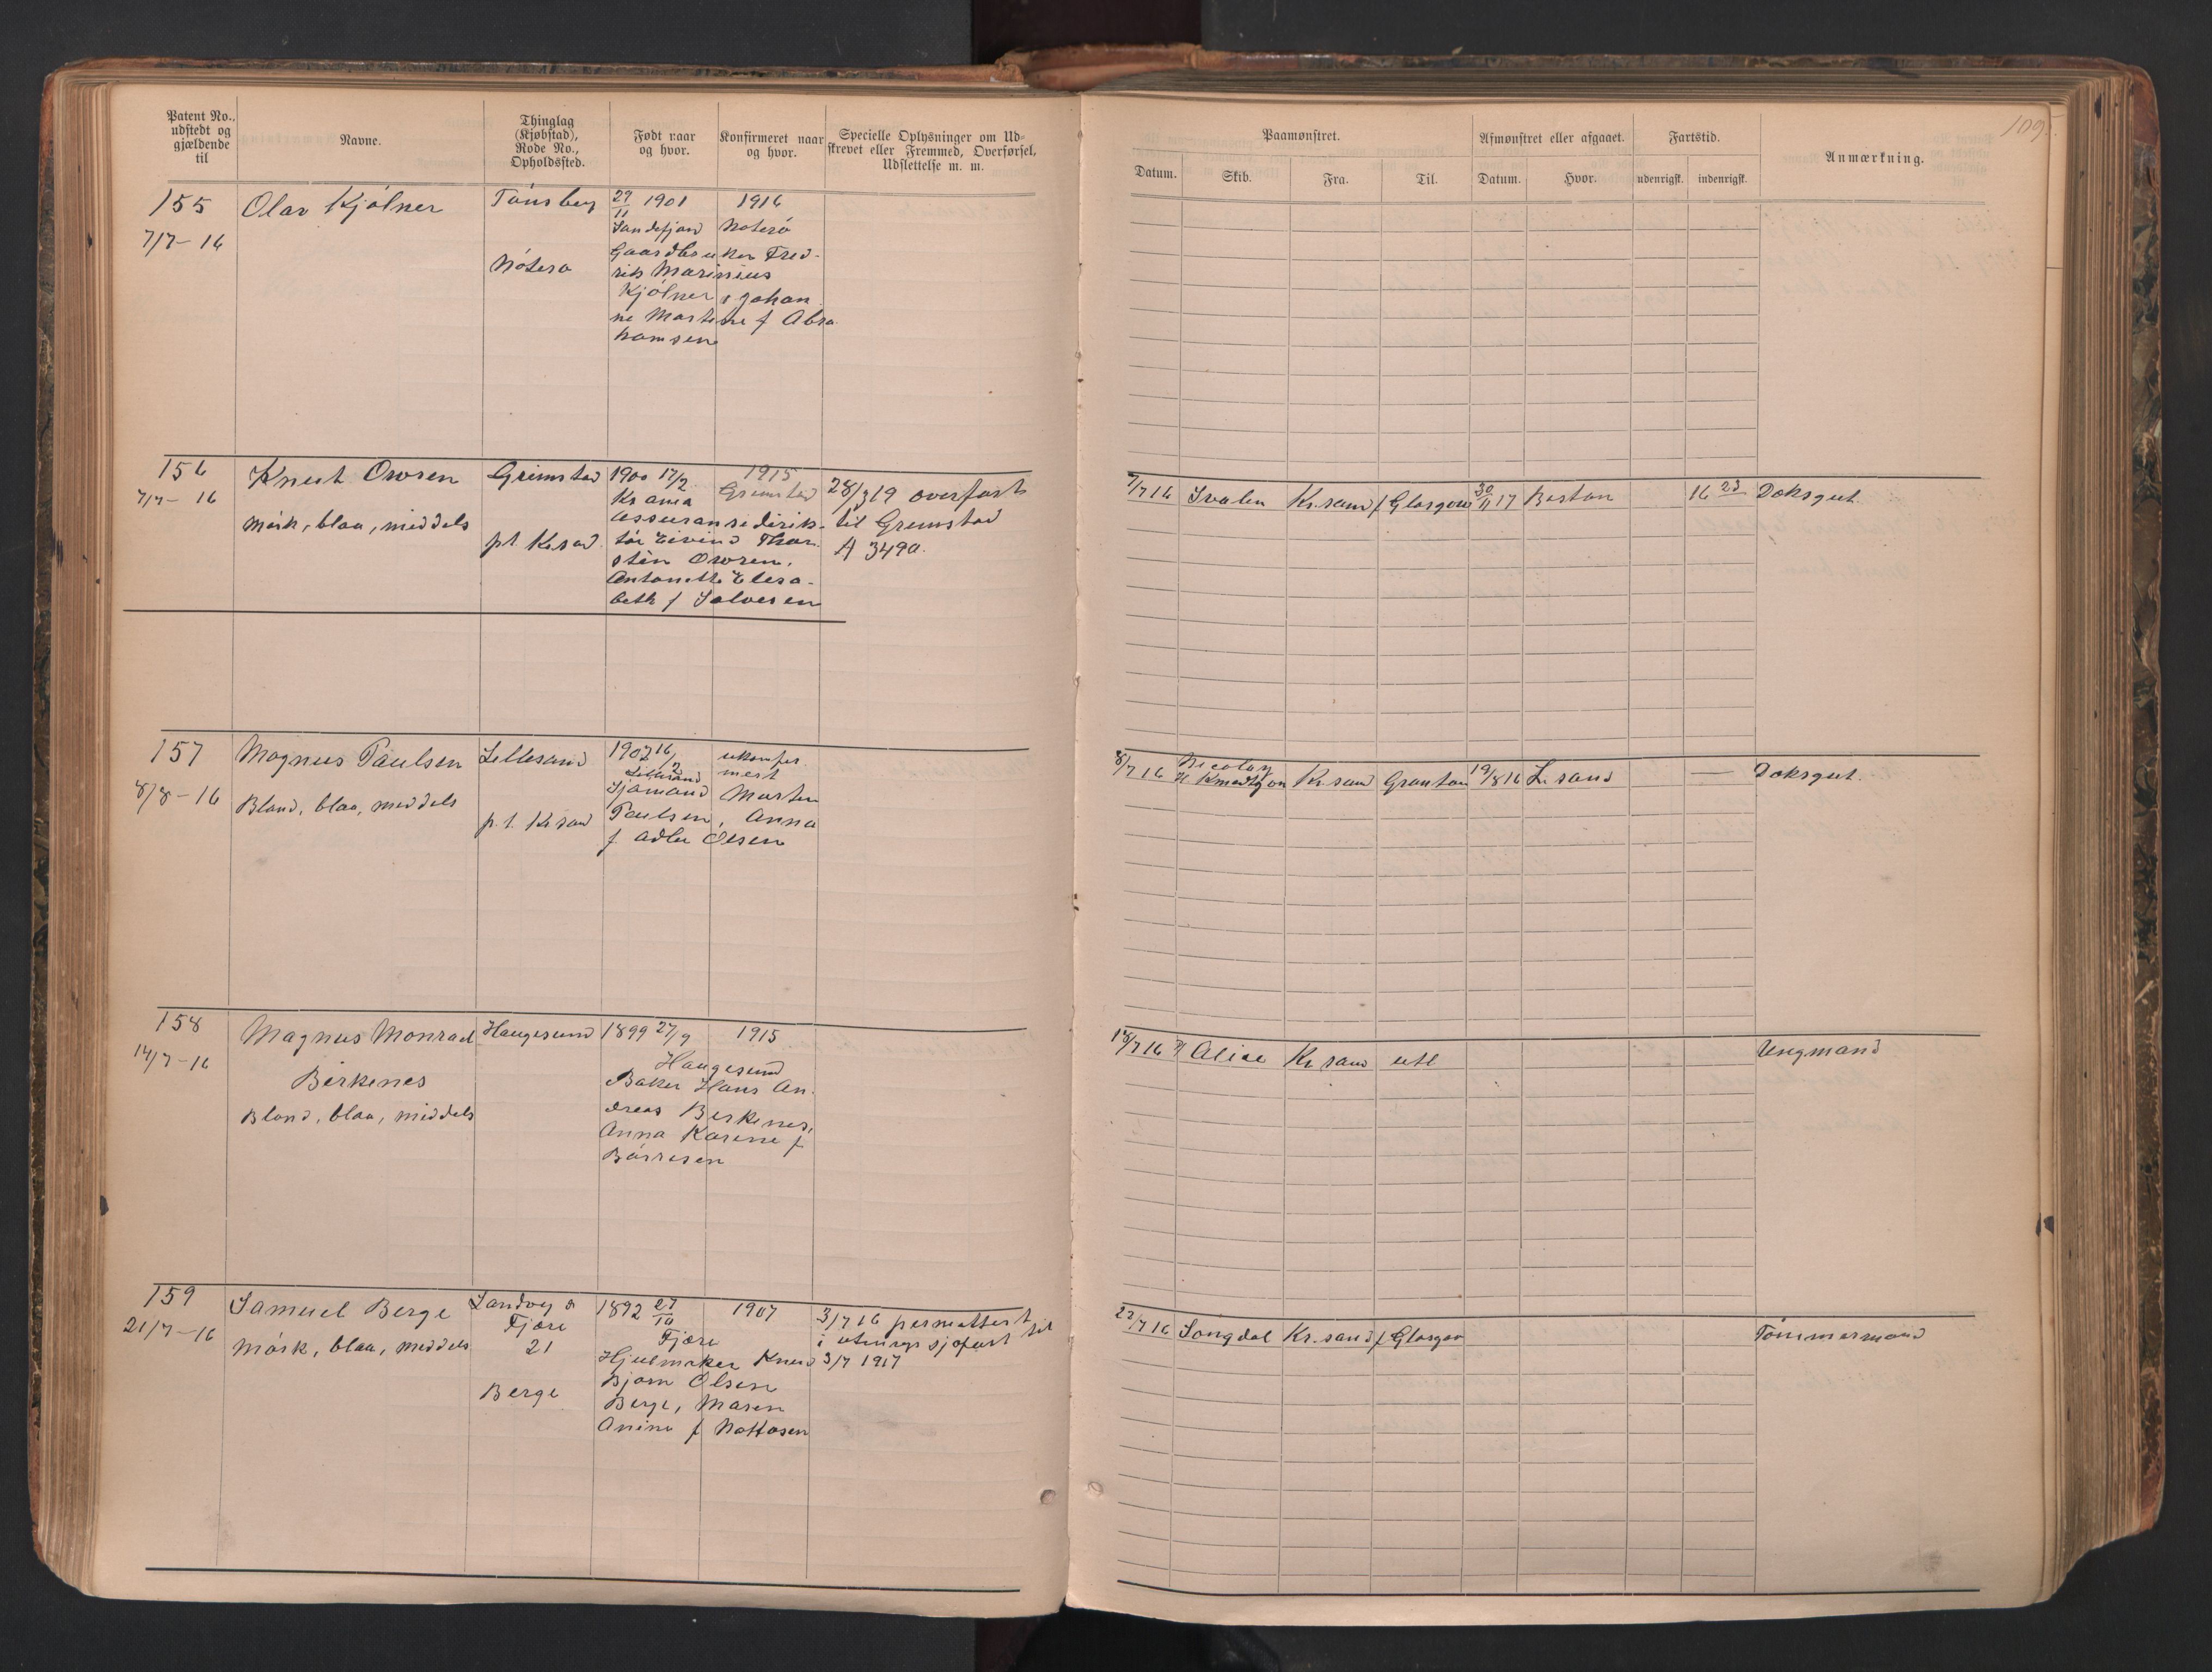 109
Patent No., udstedt og gjældende til
Navne.
Thinglag (Kjøbstad), Rode No., Opholdssted.
Født naar og hvor.
Konfirmeret naar og hvor.
Specielle Oplysninger om Udskrevet eller Fremmed, Overførsel, Udslettelse m. m.
Paamønstret.
Afmønstret eller afgaaet.
Fartstid.
Anmærkning.
Datum.
Skib.
Fra.
Til.
Datum.
Hvor.
udenrigsk.
indenrigsk.
155
7/7-16
Olav Kjølner
Tønsberg
Nøterø
29/11 1901
Sandefjord
1916
Nøterø
Gaardbruker Fred-
rik Marinius
Kjølner, Johan
ne Martine f Abra
hamsen
156
7/7-16
Knut Ovoren
mörk, blaa, middels
Grimstad
pt. Krsand
1900 17/2
Krania
1915
Grimstad
Assuransedirik-
tör Eivind Thor-
stein Ovoren,
Antonette Elisa-
beth f Salvesen
28/3 19 overført
til Grimstad
A 3490.
7/7 16
Svalen
Kr.sand
f Glasgow
30/11 17
Boston
16 23
Doksgut.
157
8/8-16
Magnus Paulsen
Blond, blaa, middels
Lillesand
p.t. Krsand
1902 16/2
Lillesand
ukonfir
mert
Sjømand Morten
Paulsen, Anna
f Adler Olsen
8/7 16
Nicolay
Knudtzon
Kr.sand
Granton
19/8 16
L.sand
—
Doksgut.
158
14/7-16
Magnus Monrad
Birkenes
Blond, blaa, middels
Haugesund
1899 27/9
1915
Haugesund
Baker Hans An-
dreas Berkines,
Anna Karine f
Børresen
18/7 16
Alice
Kr sand
utl
Ungmand
159
21/7-16
Samuel Berge
Mörk, blaa, middels
Landvig &
Fjære
21
Berge
1892 27/10
1907
Fjære
Hjulmaker Knud
Bjørn Olsen
Berge, Maren
Anine f Nottosen
3/7 16 permittert
i utenrgs sjøfart til
3/7 1917
22/7 16
Songdal
Kr.sand
f Glasgow
Tømmermand